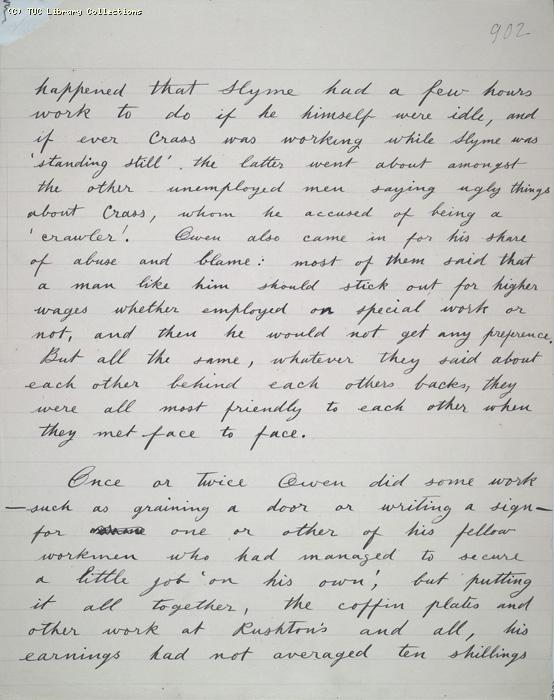 (C) TUC Library Collections
902
happened that Slyme had a few hours
work to do if he himself were idle, and
if ever Crass was working while Slyme was
'standing still'. the latter went about amongst
the other unemployed men saying ugly things
about Crass, whom he accused of being a
'crawler'. Owen also came in for his share
of abuse and blame: most of them said that
a man like him should stick out for higher
wages whether employed on special work or
not, and then he would not get any preference.
But all the same, whatever they said about
each other behind each others backs, they
were all most friendly to each other when
they met face to face.
Once or twice Owen did some work
—such as graining a door or writing a sign—
for one or other of his fellow
workmen who had managed to secure
a little job 'on his own', but putting
it all together, the coffin plates and
other work at Rushton's and all, his
earnings had not averaged ten shillings